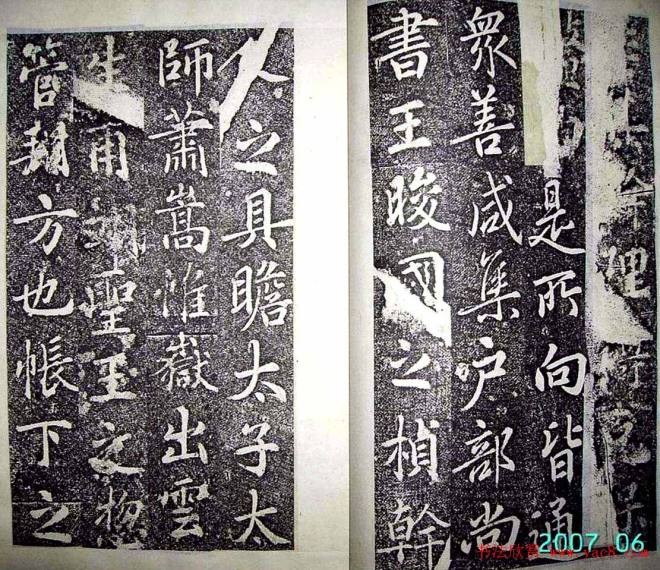 是所向皆通
衆善咸集户部尚
書王晙國之楨幹
人之具瞻太子太
師蕭嵩惟嶽出雲
生甫聖主之惣
管朔方也帳下之
2007 06
书法欣赏 www.yac8.com